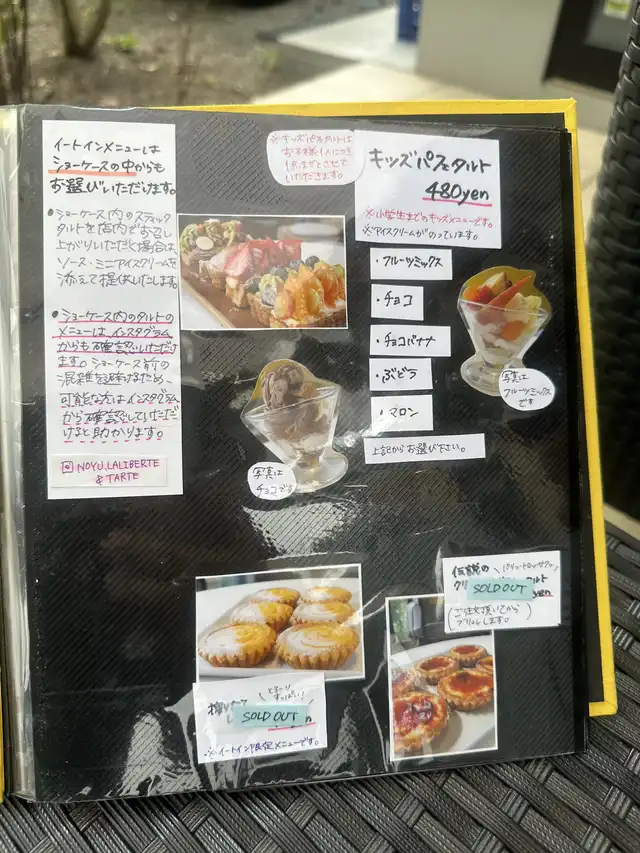 イートインメニューは
ショーケースの中からも
お選びいただけます。
•ショーケース内のスティック
タルトを店内でお召し
上がりいただく場合は
ソース・ミニアイスクリームを
添えて提供いたします。
•ショーケース内のタルトの
メニューはインスタグラム
からも確認いただけ
ます。ショーケース前の
混雑を避けるため、
可能な方はインスタグラム
から確認していただ
けると助かります。
NOYU.LALIBERTE
& TARTE
※キッズパフェタルトは
お子様1人につき
1点までとさせて
いただきます。
キッズパフェタルト
480yen
※小学生までのキッズメニューです。
※アイスクリームがのっています。
・フルーツミックス
・チョコ
・チョコバナナ
・ぶどう
・マロン
上記からお選び下さい。
写真は
フルーツミックス
です
写真は
チョコです
伝説の
SOLD OUT
yen
ご注文頂いてから
ブリュレします。
SOLD OUT
※イートイン限定メニューです。